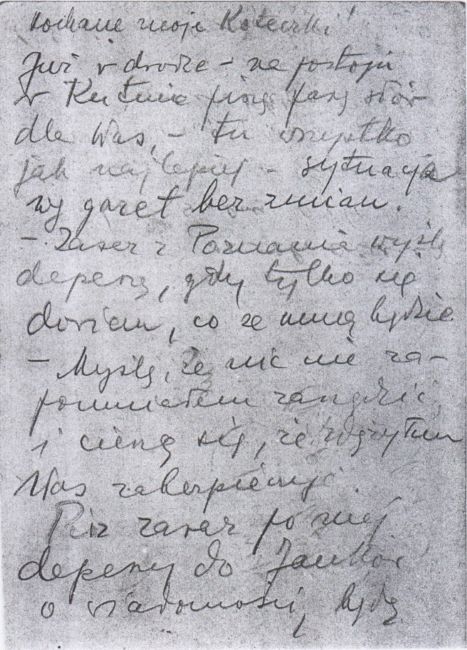 Kochane moje Koteczki!
Już w drodze – na postoju
w Kutnie piszę parę słów
dla Was, – tu wszystko
jak najlepiej – sytuacja
wg gazet bez zmian.
– Zaraz z Poznania wyślę
depeszę, gdy tylko się
dowiem, co ze mną będzie.
– Myślę, że nic nie za-
pomniałem zarządzić
i cieszę się, że
Was zabezpieczyć
Pisz zaraz po mej
depeszy do
o wiadomości, będę